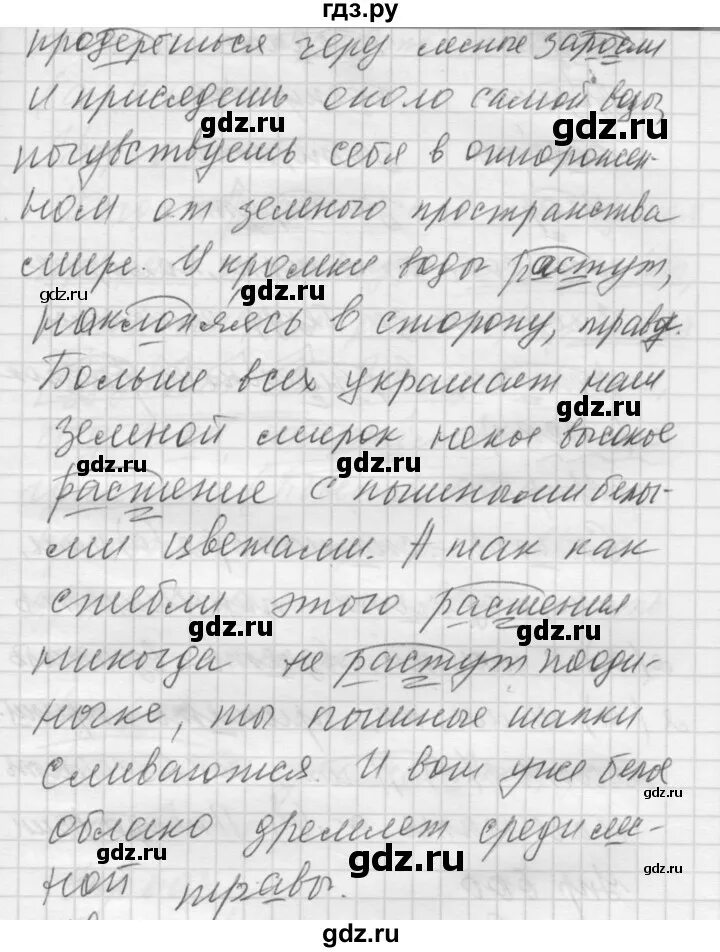 гдз.ру
продерёшься через лесные заросли
и присядешь около самой воды
gdz.ru
gdz.ru
почувствуешь себя в отгорожен-
ном от зеленого пространства
мире. У кромки воды растут,
gdz.ru
gdz.ru
gdz.ru
наклоняясь в сторону, травы.
Больше всех украшает наш
gdz.ru
зеленой мирок некое высокое
gdz.ru
gdz.ru
растение с пышными белы-
ми цветами. А так как
стебли этого растения
gdz.ru
gdz.ru
никогда не растут пооди-
ночке, то пышные шапки
сливаются. И вот уже белое
gdz.ru
облако дремлет среди лес-
gdz.ru
gdz.ru
gdz.ru
ной травы.
gdz.ru
гдз.ру